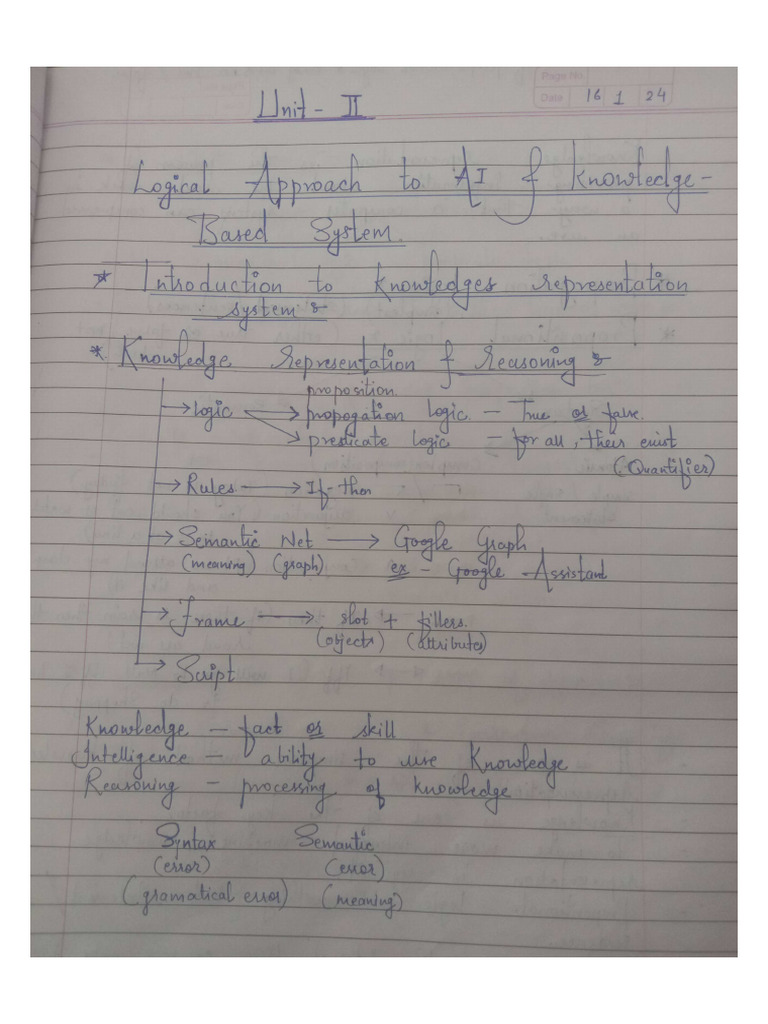 Page No.
Date 16 1 24
Unit - II
Logical Approach to AI & Knowledge-
Based System.
* Introduction to Knowledges representation
system :
* Knowledge representation & Reasoning :
proposition.
→ Logic → propogation logic - True or false.
→ predicate logic - for all, their exist
(Quantifier)
→ Rules → If-then
→ Semantic Net → Google Graph
(meaning) (graph) ex - Google Assistant
→ Frame → slot + fillers.
(objects) (attributes)
→ Script
Knowledge - fact or skill
Intelligence - ability to use Knowledge
Reasoning - processing of knowledge
Syntax Semantic
(error) (error)
(gramatical error) (meaning)